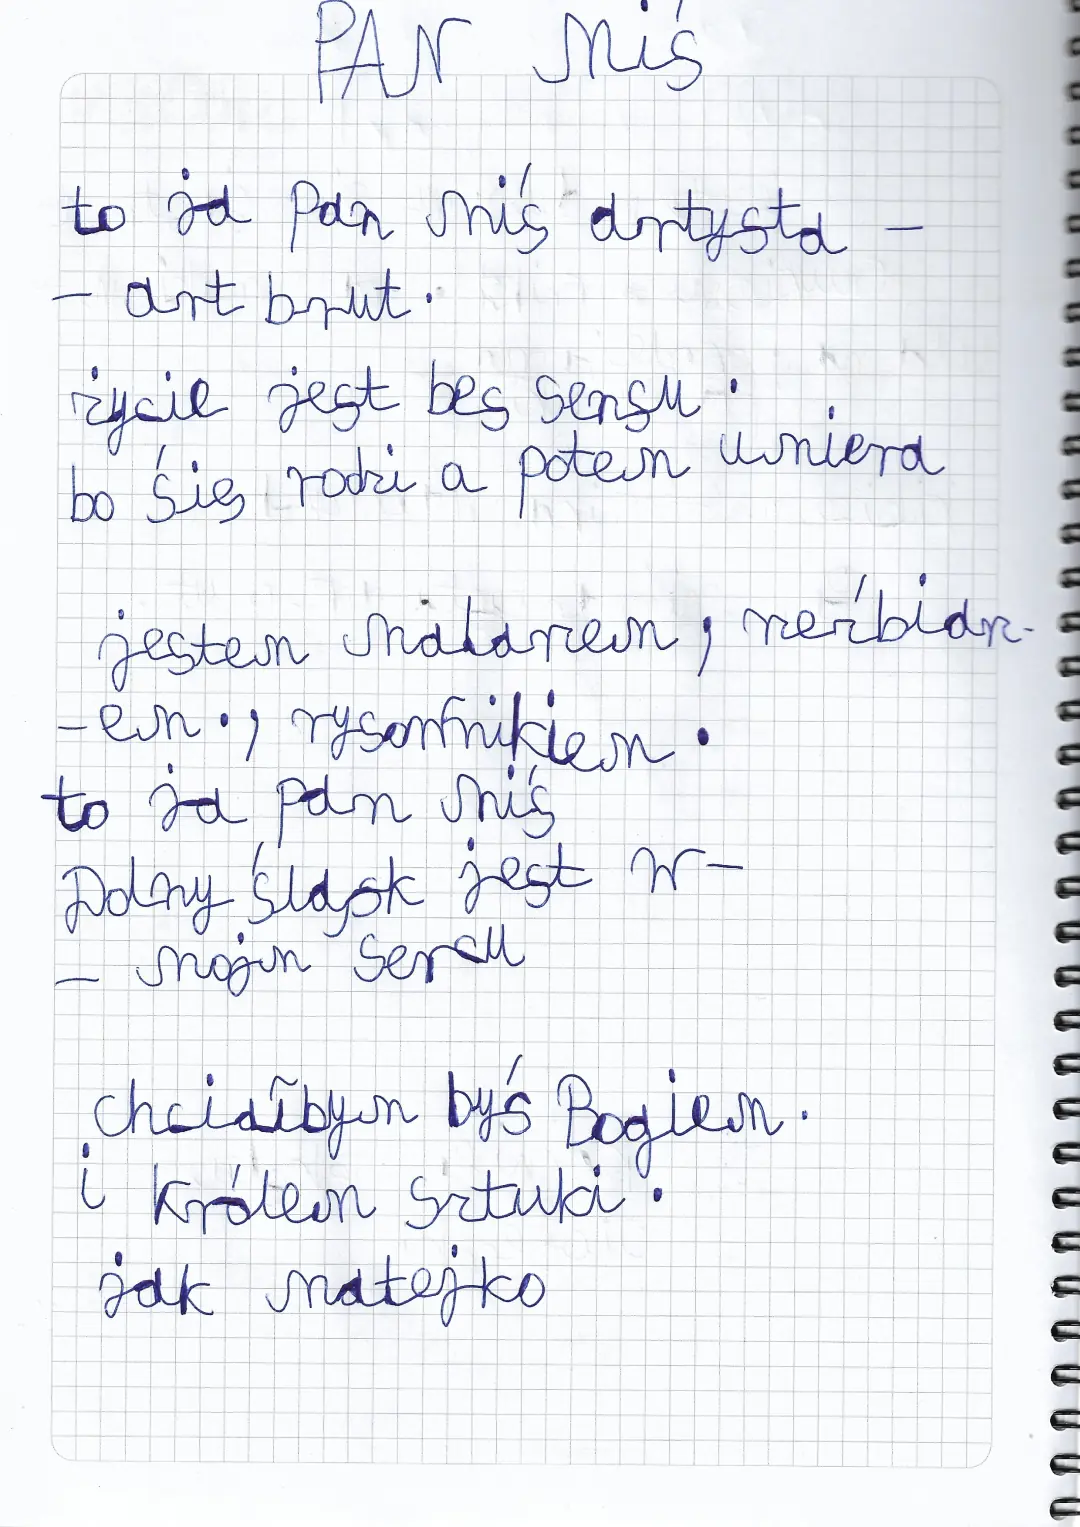 PAN Miś
to ja Pan Miś artysta -
- art brut.
życie jest bes sensu.
bo śię rodzi a potem umiera
jestem malarem, reźbiar-
-em., rysownikiem.
to ja pan Miś
Dolny śląsk jest w-
- mojm sercu
chciałbym byś Bogiem.
i królem Sztuki.
jak matejko